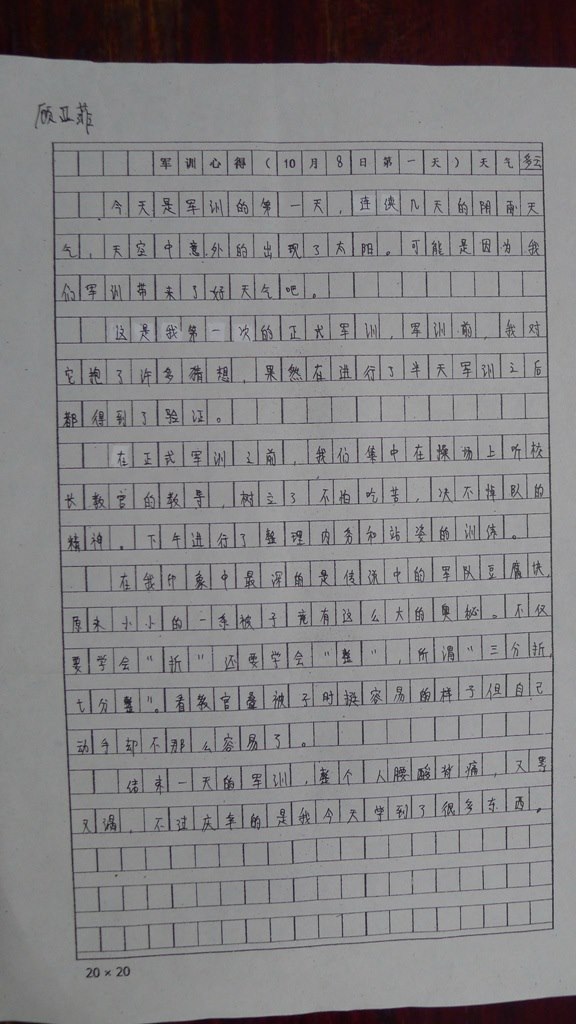 顾亚菲
军训心得(10月8日第一天)天气多云
今天是军训的第一天,连续几天的阴雨天
气,天空中意外的出现了太阳。可能是因为我
们军训带来了好天气吧。
这是我第一次的正式军训,军训前,我对
它抱了许多猜想,果然在进行了半天军训之后
都得到了验证。
在正式军训之前,我们集中在操场上听校
长教官的教导,树立了不怕吃苦,决不掉队的
精神。下午进行了整理内务和站姿的训练。
在我印象中最深的是传说中的军队豆腐块,
原来小小的一条被子竟有这么大的奥秘。不仅
要学会“折”还要学会“整”,所谓“三分折,
七分整”。看教官叠被子时挺容易的样子但自己
动手却不那么容易了。
结束一天的军训,整个人腰酸背痛,又累
又渴,不过庆幸的是我今天学到了很多东西。
20×20